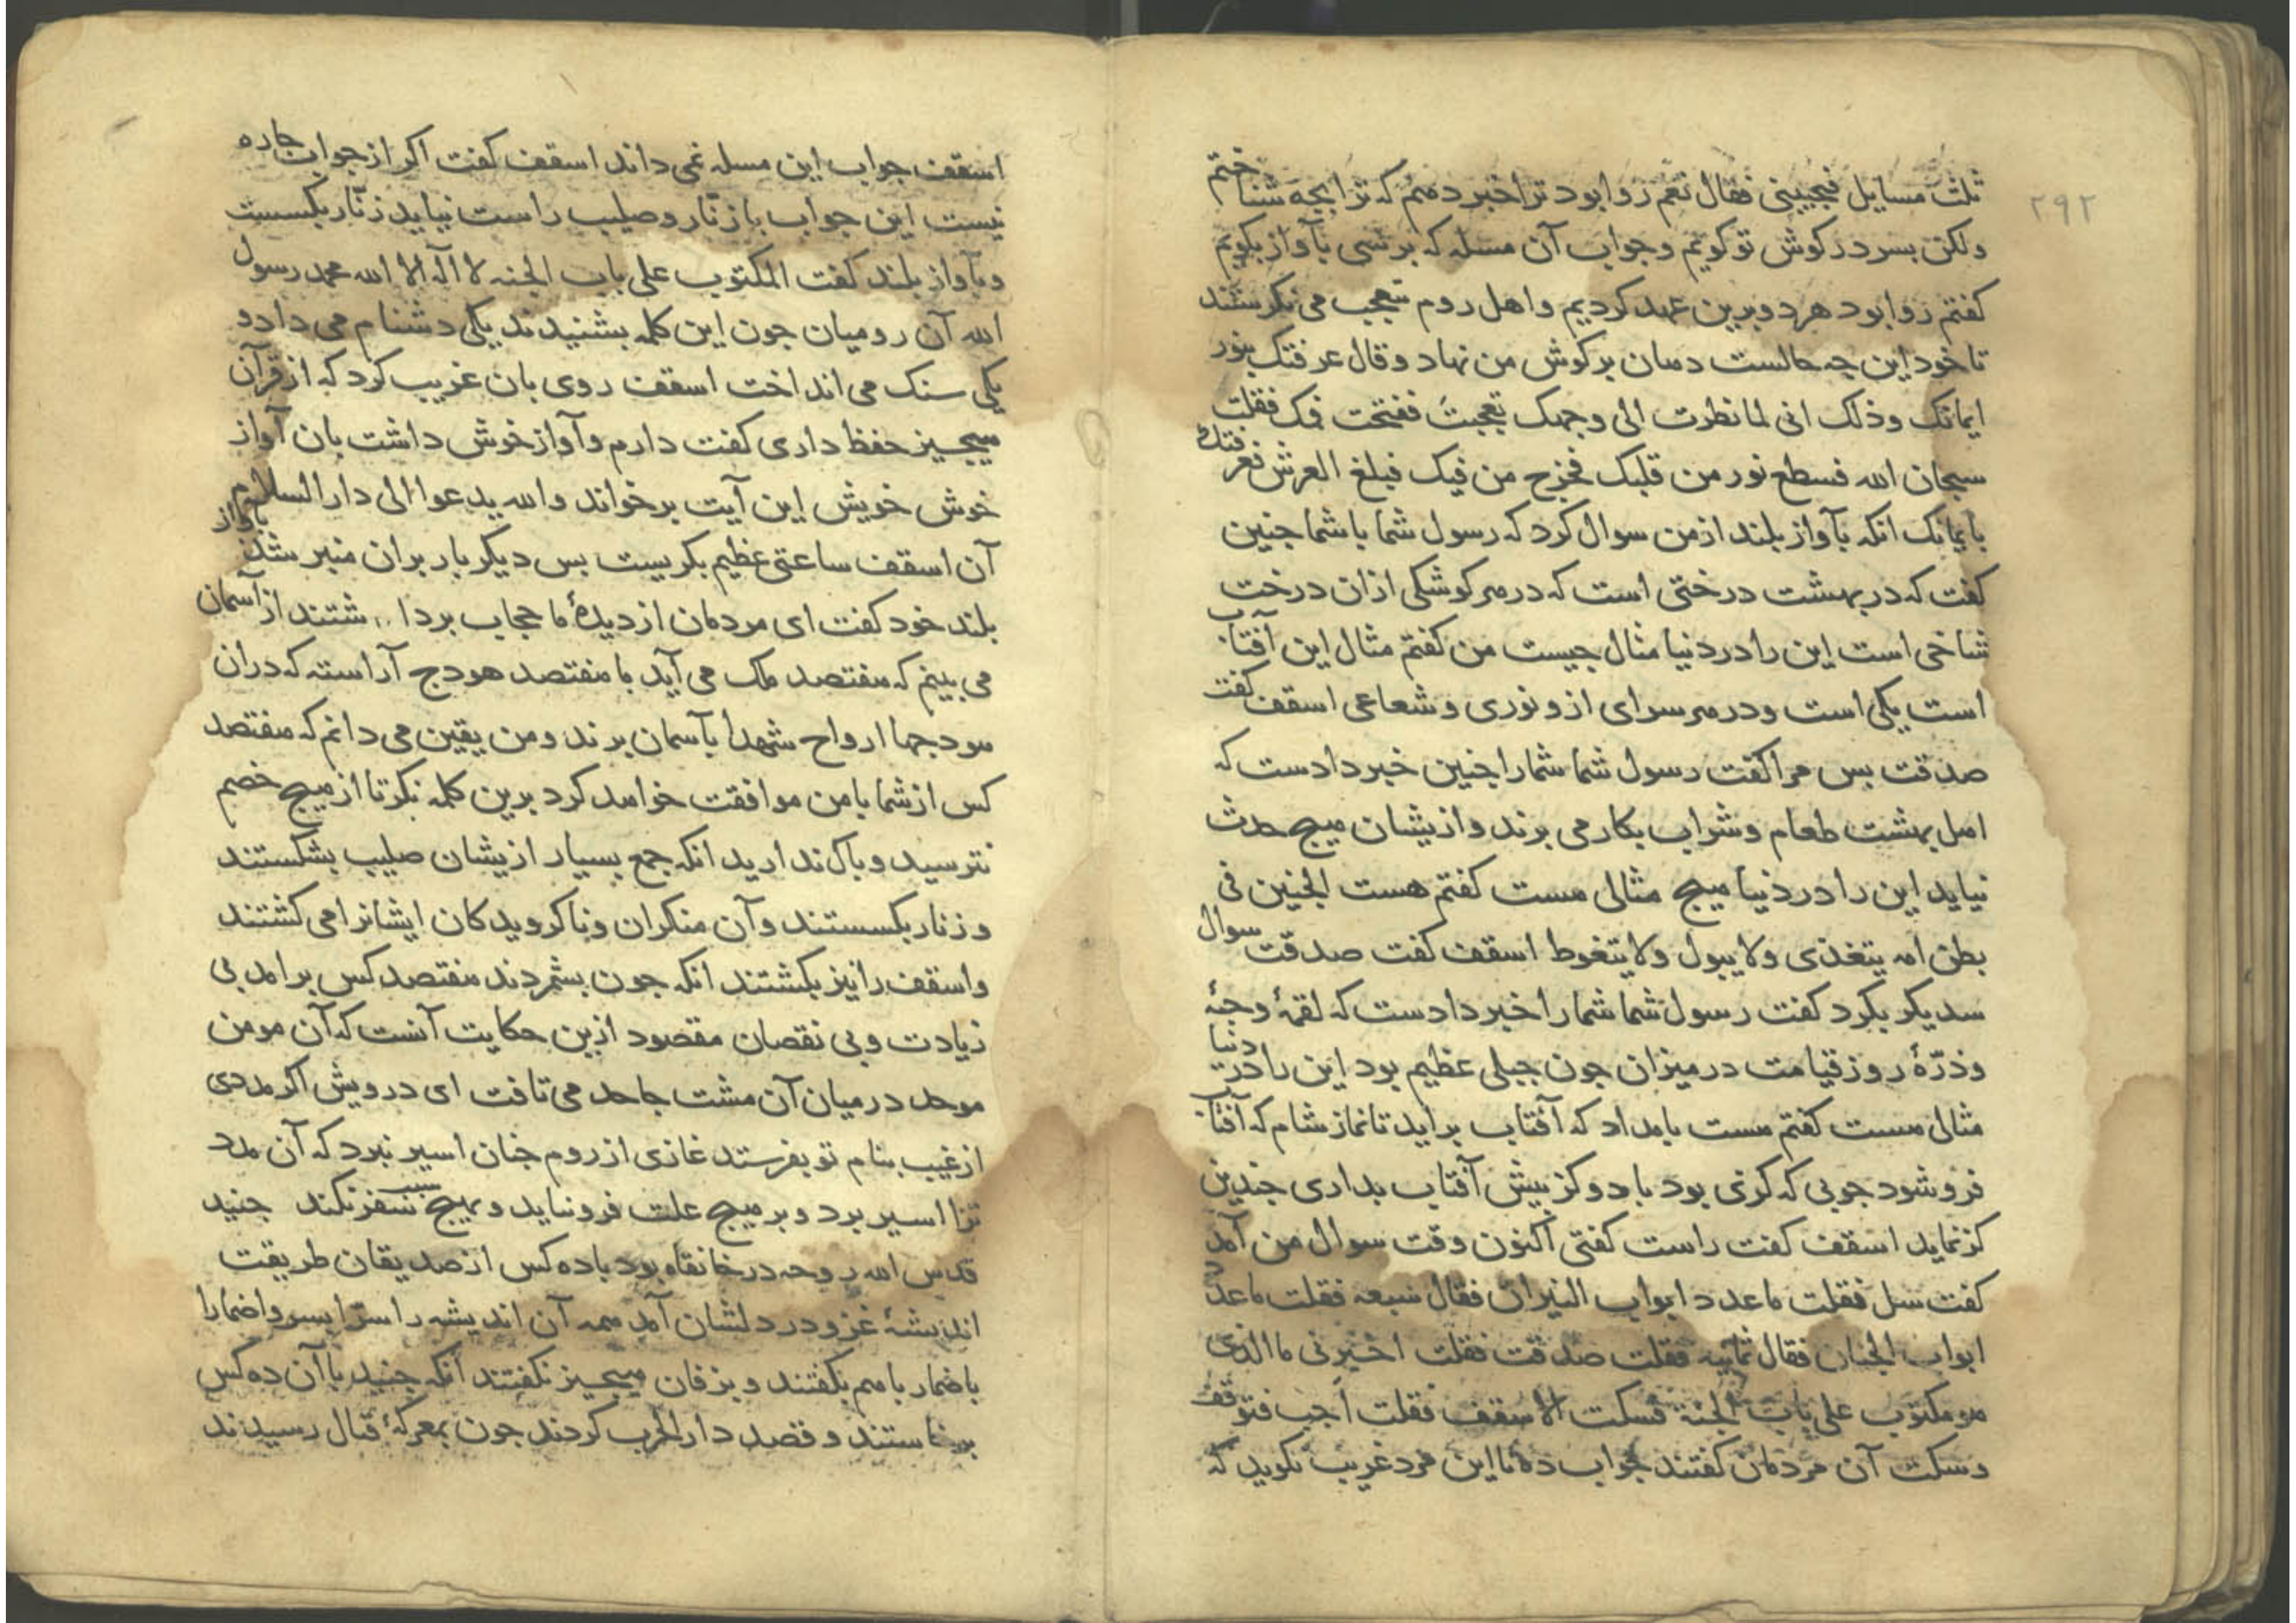 ۲۹۲
ثلث مسایل فیجیبنی فقال نعم روا بود ترا خبر دهم که ترا بجه شناختم
ولکن بسر در کوش تو کویم وجواب آن مسله که برسی بآواز بکویم
کفتم روا بود هردو برین عهد کردیم واهل روم تعجب می نکرستند
تا خود این جه حالست دهان بر کوش من نهاد وقال عرفتک بنور
ایمانک وذلک انی لما نظرت الی وجهک تعجبت ففتحت فمک فقلت
سبحان الله فسطع نور من قلبک فخرج من فیک فبلغ العرش فعرفتک
بایمانک انکه بآواز بلند از من سوال کرد که رسول شما با شما جنین
کفت که در بهشت درختی است که در هر کوشکی ازان درخت
شاخی است این را در دنیا مثال جیست من کفتم مثال این آفتاب
است یکی است ودر هر سرای ازو نوری وشعاعی اسقف کفت
صدقت بس مرا کفت رسول شما شما را جنین خبر دادست که
اهل بهشت طعام وشراب بکار می برند وازیشان هیج حدث
نیاید این را در دنیا هیج مثالی هست کفتم هست الجنین فی
بطن امه یتغذی ولا یبول ولا یتغوط اسقف کفت صدقت سوال
سدیکر بکرد کفت رسول شما شما را خبر دادست که لقمۀ وحبۀ
وذرّۀ روز قیامت در میزان جون جبلی عظیم بود این را در دنیا
مثالی هست کفتم هست بامداد که آفتاب براید تا نماز شام که آفتاب
فرو شود جوبی که کزی بود با دو کز بیش آفتاب بداری جندین
کز نماید اسقف کفت راست کفتی اکنون وقت سوال من آمد
کفت سل فقلت ما عدد ابواب النیران فقال سبعه فقلت ما عدد
ابواب الجنان فقال ثمانیه فقلت صدقت فقلت اخبرنی ما الذی
هو مکتوب علی باب الجنة فسکت الاسقف فقلت اجب فتوقف
وسکت آن مردمان کفتند جواب ده تا این مرد غریب نکوید که
اسقف جواب این مسله نمی داند اسقف کفت اکر از جواب جاره
نیست این جواب با زنّار وصلیب راست نیاید زنّار بکسست
وبآواز بلند کفت المکتوب علی باب الجنه لا اله الا الله محمد رسول
الله آن رومیان جون این کلمه بشنیدند یکی دشنام می داد و
یکی سنک می انداخت اسقف روی بان غریب کرد که از قرآن
هیجیز حفظ داری کفت دارم وآواز خوش داشت بان آواز
خوش خویش این آیت برخواند والله یدعوا الی دار السلام
آن اسقف ساعتی عظیم بکریست بس دیکر بار بران منبر شد بآواز
بلند خود کفت ای مردمان از دیدۀ ما حجاب بردا شتند از آسمان
می بینم که هفتصد ملک می آید با هفتصد هودج آراسته که دران
هودجها ارواح شهدا بآسمان برند ومن یقین می دانم که هفتصد
کس از شما با من موافقت خواهد کرد برین کلمه نکر تا از هیج خصم
نترسید وباک ندارید انکه جمع بسیار ازیشان صلیب بشکستند
وزنار بکسستند وآن منکران وناکرویدکان ایشانرا می کشتند
واسقف را نیز بکشتند انکه جون بشمردند هفتصد کس برامد بی
زیادت وبی نقصان مقصود ازین حکایت آنست که آن مومن
موحد در میان آن مشت جاحد می تافت ای درویش اکر مددی
از غیب بنام تو بفرستد غازی از روم جنان اسیر نبرد که آن مدد
ترا اسیر برد وبر هیج علت فرو نیاید وبهیج سبب سفر نکند جنید
قدس الله روحه در خانقاه بود با ده کس از صدیقان طریقت
اندیشۀ غزو در دلشان آمد همه آن اندیشه را سرّا بسر واضمارا
باضمار با هم بکفتند وبزفان هیجیز نکفتند آنکه جنید با آن ده کس
برخاستند وقصد دار الحرب کردند جون بمعرکۀ قتال رسیدند